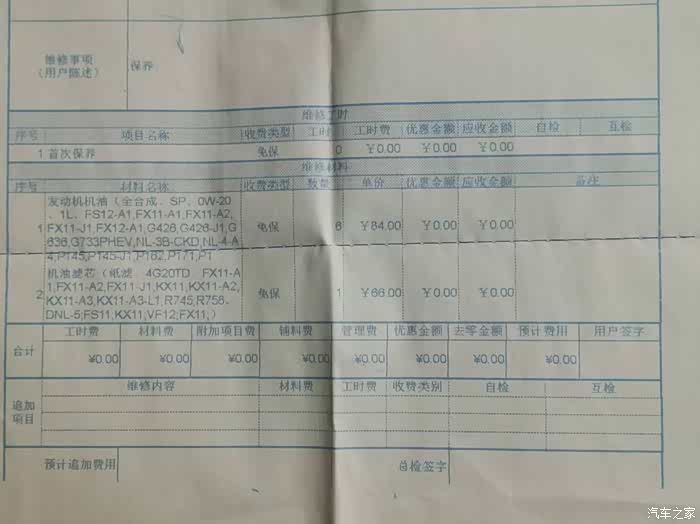 维修事项
(用户陈述)
保养
维修工时
序号 项目名称 收费类型 工时 工时费 优惠金额 应收金额 自检 互检
1 首次保养 免保 0 ￥0.00 ￥0.00 ￥0.00
维修材料
序号 材料名称 收费类型 数量 单价 优惠金额 应收金额 备注
发动机机油（全合成、SP、0W-20
、1L、FS12-A1,FX11-A1,FX11-A2,
1 FX11-J1,FX12-A1,G426,G426-J1,G 免保 6 ￥84.00 ￥0.00 ￥0.00
636,G733PHEV,NL-3B-CKD,NL-4-A
4,P145,P145-J1,P162,P171,P1
机油滤芯（纸滤、4G20TD、FX11-A
1,FX11-A2,FX11-J1,KX11,KX11-A2,
2 KX11-A3,KX11-A3-L1,R745,R758、 免保 1 ￥66.00 ￥0.00 ￥0.00
DNL-5;FS11,KX11,VF12;FX11;）
工时费 材料费 附加项目费 辅料费 管理费 优惠金额 去零金额 预计费用 用户签字
合计 ¥0.00 ¥0.00 ¥0.00 ¥0.00 ¥0.00 ¥0.00 ¥0.00 ¥0.00
维修内容 材料费 工时费 收费类别 自检 互检
追加
项目
预计追加费用 总检签字
汽车之家